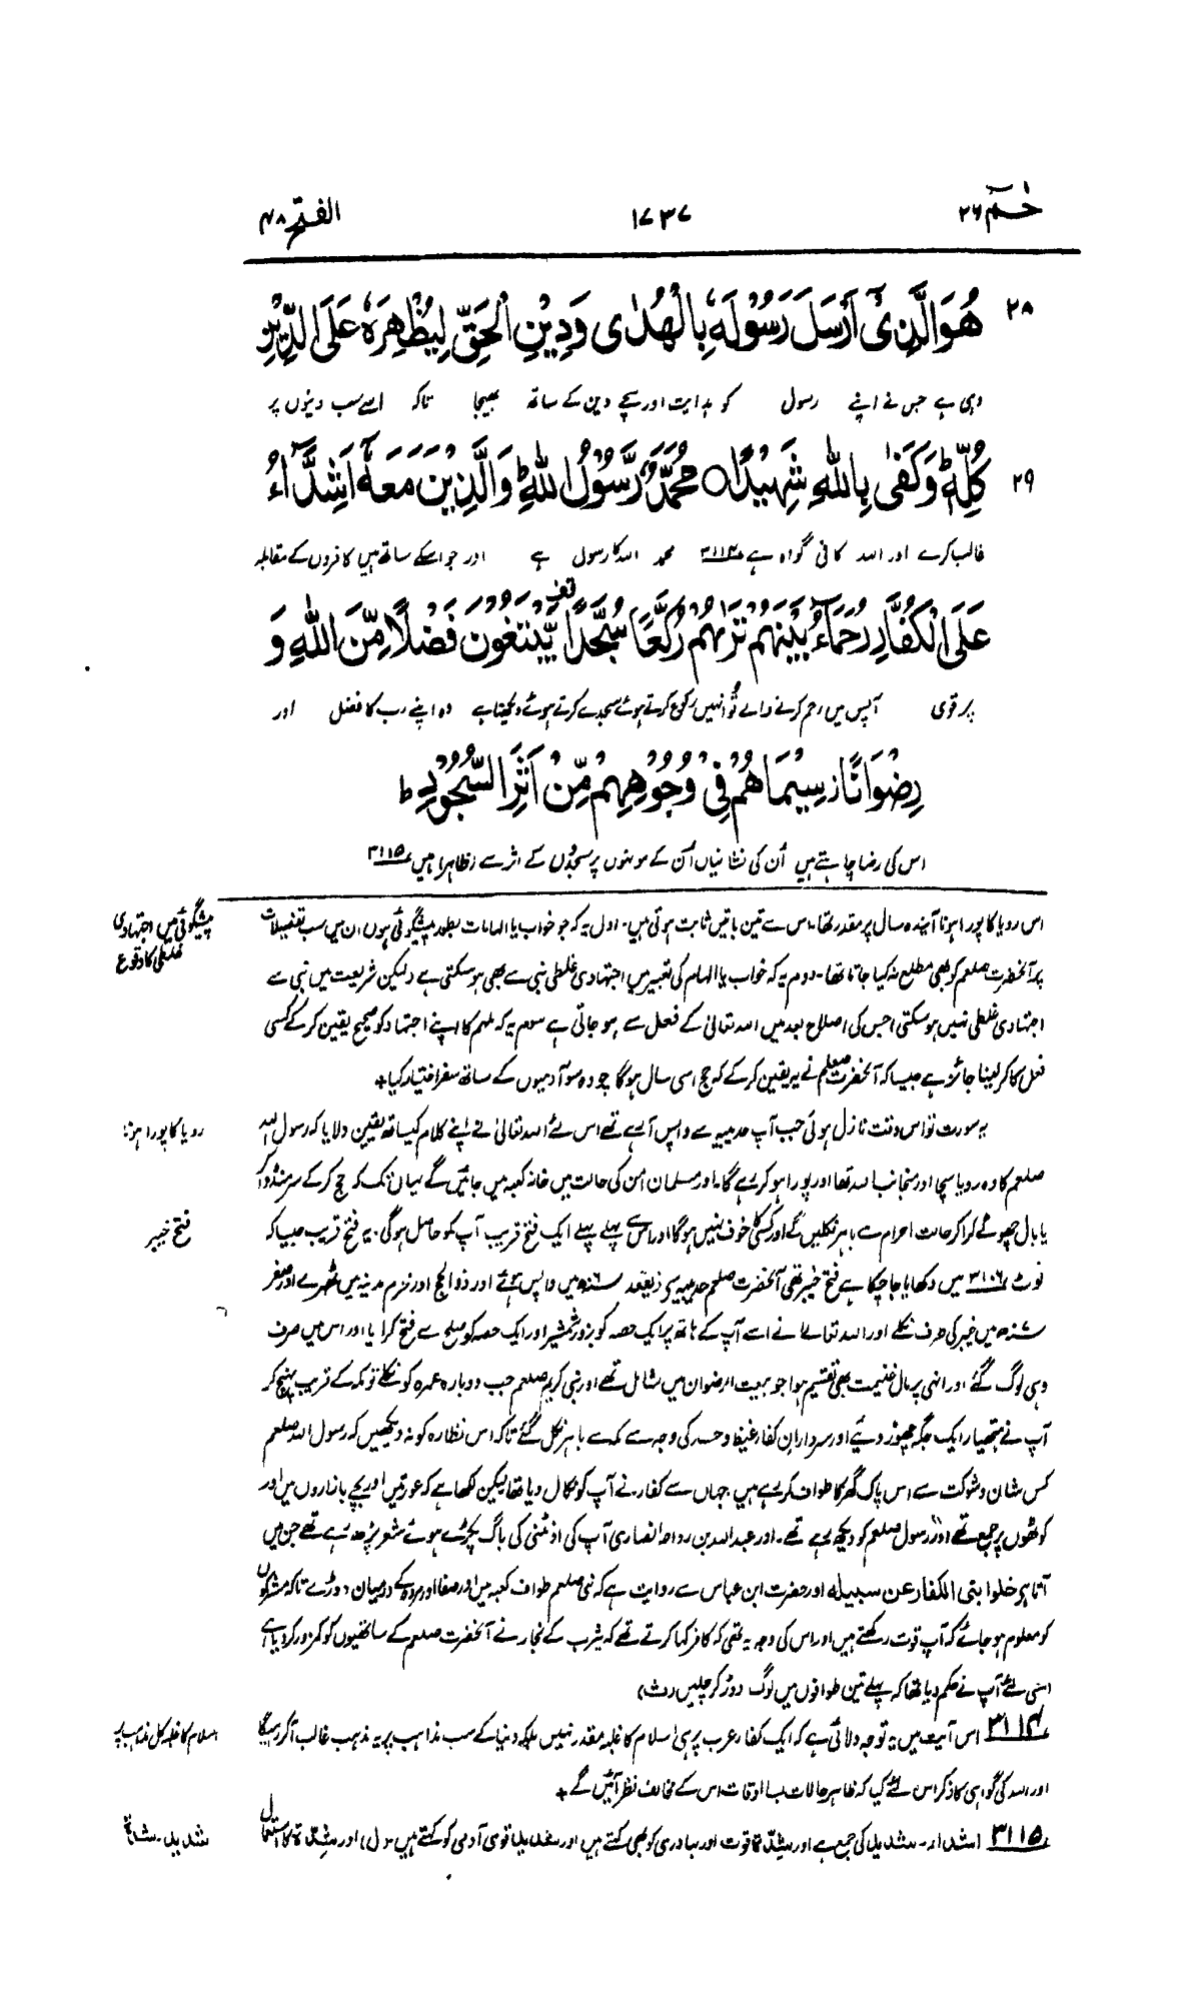 حٰمٓ ۲۶ ۱۷۳۷ الفتح ۴۸
۲۸ هُوَ الَّذِیْۤ اَرْسَلَ رَسُوْلَهٗ بِالْهُدٰی وَدِیْنِ الْحَقِّ لِیُظْهِرَهٗ عَلَی الدِّیْنِ
وہی ہے جس نے اپنے رسول کو ہدایت اور سچے دین کے ساتھ بھیجا تاکہ اسے سب دینوں پر
۲۹ كُلِّهٖ ؕ وَكَفٰی بِاللّٰهِ شَهِیْدًا ○ مُحَمَّدٌ رَّسُوْلُ اللّٰهِ ؕ وَالَّذِیْنَ مَعَهٗۤ اَشِدَّآءُ
غالب کرے اور اللہ کافی گواہ ہے ۳۱۱۴ محمد اللہ کا رسول ہے اور جو اسکے ساتھ ہیں کافروں کے مقابلہ
عَلَی الْكُفَّارِ رُحَمَآءُ بَیْنَهُمْ تَرٰىهُمْ رُكَّعًا سُجَّدًا یَّبْتَغُوْنَ فَضْلًا مِّنَ اللّٰهِ وَ
پر قوی آپس میں رحم کرنے والے تُو انہیں رکوع کرتے ہوئے سجدے کرتے ہوئے دیکھتا ہے وہ اپنے رب کا فضل اور
رِضْوَانًا ز سِیْمَاهُمْ فِیْ وُجُوْهِهِمْ مِّنْ اَثَرِ السُّجُوْدِ ؕ
اس کی رضا چاہتے ہیں اُن کی نشانیاں اُن کے مونہوں پر سجدوں کے اثر سے (ظاہر) ہیں ۳۱۱۵
پیشگوئی میں اجتہادی
غلطی کا وقوع
اس رویا کا پورا ہونا آیندہ سال پر مقدر تھا۔ اس سے تین باتیں ثابت ہوتی ہیں۔ اول یہ کہ جو خواب یا الہامات بطور پیشگوئی ہوں ان میں سب تفصیلات
پر آنحضرت صلعم کو بھی مطلع نہ کیا جاتا تھا۔ دوم یہ کہ خواب یا الہام کی تعبیر میں اجتہادی غلطی نبی سے بھی ہو سکتی ہے (لیکن شریعت میں نبی سے
اجتہادی غلطی نہیں ہو سکتی) جس کی اصلاح بعد میں اللہ تعالیٰ کے فعل سے ہو جاتی ہے سوم یہ کہ ملہم کا اپنے اجتہاد کو صحیح یقین کر کے کسی
فعل کا کر لینا جائز ہے جیسا کہ آنحضرت صلعم نے یہ یقین کر کے کہ حج اسی سال ہوگا چودہ سو آدمیوں کے ساتھ سفر اختیار کیا +
رویا کا پورا ہونا
یہ سورت تو اس وقت نازل ہوئی جب آپ حدیبیہ سے واپس آ رہے تھے اس لئے اللہ تعالیٰ نے اپنے کلام کیساتھ یقین دلایا کہ رسول اللہ
صلعم کا وہ رویا سچا اور منجانب اللہ تھا اور پورا ہو کر رہے گا۔ اور مسلمان امن کی حالت میں خانہ کعبہ میں جائیں گے یہاں تک کہ حج کر کے سر منڈوا کر
فتح خیبر
یا بال چھوٹے کرا کر حالت احرام سے باہر نکلیں گے اور کسی کا خوف نہیں ہوگا اور اس سے پہلے پہلے ایک فتح قریب آپ کو حاصل ہوگی۔ یہ فتح قریب جیسا کہ
نوٹ ۳۱۰۶ میں دکھایا جا چکا ہے فتح خیبر تھی آنحضرت صلعم حدیبیہ سے ذیقعد ۶ھ میں واپس ہوئے اور ذوالحج اور محرم مدینہ میں ٹھہرے اور صفر
۷ھ میں خیبر کی طرف نکلے اور اللہ تعالےٰ نے اسے آپ کے ہاتھ پر ایک حصہ کو بزور شمشیر اور ایک حصہ کو صلح سے فتح کرا دیا اور اس میں صرف
وہی لوگ گئے اور انہی پر مال غنیمت بھی تقسیم ہوا جو بیعت الرضوان میں شامل تھے اور نبی کریم صلعم جب دوبارہ عمرہ کو نکلے تو مکہ کے قریب پہنچ کر
آپ نے ہتھیار ایک جگہ چھوڑ دیئے اور سرداران کفار غیظ و حسد کی وجہ سے مکہ سے باہر نکل گئے تاکہ اس نظارہ کو نہ دیکھیں کہ رسول اللہ صلعم
کس شان و شوکت سے اس پاک گھر کا طواف کر رہے ہیں جہاں سے کفار نے آپ کو نکال دیا تھا لیکن لکھا ہے کہ عورتیں اور بچے بازاروں میں اور
کوٹھوں پر جمع تھے اور رسول صلعم کو دیکھ رہے تھے۔ اور عبداللہ بن رواحہ انصاری آپ کی اونٹنی کی باگ پکڑے ہوئے شعر پڑھ رہے تھے جن میں
آتا ہے خلوا بنی الکفار عن سبیلہ اور حضرت ابن عباس سے روایت ہے کہ نبی صلعم طواف کعبہ میں اور صفا اور مروہ کے درمیان دوڑے تاکہ مشرکوں
کو معلوم ہو جائے کہ آپ قوت رکھتے ہیں اور اس کی وجہ یہ تھی کہ کافر کہا کرتے تھے کہ یثرب کے بخار نے آنحضرت صلعم کے ساتھیوں کو کمزور کر دیا ہے
اسی لئے آپ نے حکم دیا تھا کہ پہلے تین طوافوں میں لوگ دوڑ کر چلیں (ث)
اسلام کا غلبہ کل مذاہب پر
۳۱۱۴ اس آیت میں یہ توجہ دلائی ہے کہ ایک کفار عرب پر ہی اسلام کا غلبہ مقدر نہیں بلکہ دنیا کے سب مذاہب پر یہ مذہب غالب آ کر رہیگا
اور اللہ کی گواہی کا ذکر اس لئے کیا کہ ظاہر حالات بسا اوقات اس کے مخالف نظر آئیں گے +
شدید۔ شدّۃ
۳۱۱۵ اشداء۔ شدید کی جمع ہے اور شِدّۃ قوت اور بہادری کو بھی کہتے ہیں اور شدید قوی آدمی کو کہتے ہیں (ل) اور شِدّۃ کا استعمال